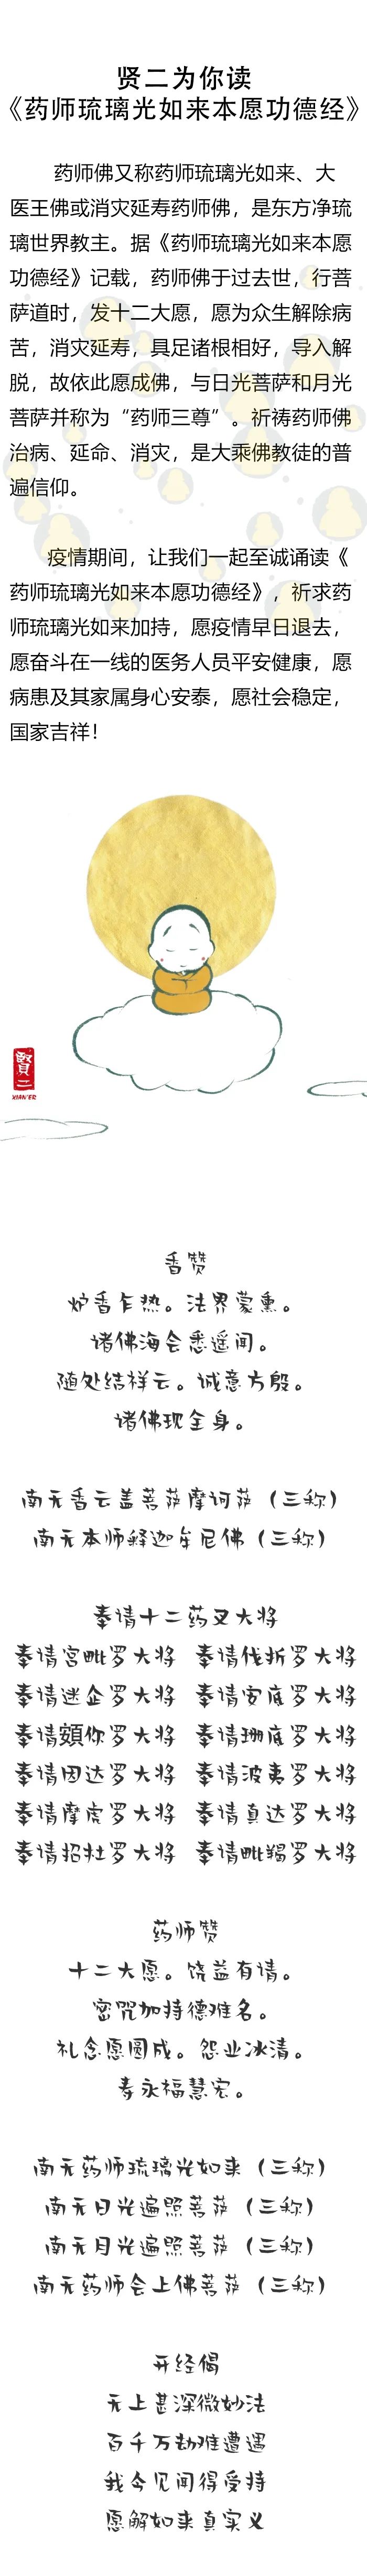 贤二为你读
《药师琉璃光如来本愿功德经》
药师佛又称药师琉璃光如来、大
医王佛或消灾延寿药师佛，是东方净琉
璃世界教主。据《药师琉璃光如来本愿
功德经》记载，药师佛于过去世，行菩
萨道时，发十二大愿，愿为众生解除病
苦，消灾延寿，具足诸根相好，导入解
脱，故依此愿成佛，与日光菩萨和月光
菩萨并称为“药师三尊”。祈祷药师佛
治病、延命、消灾，是大乘佛教徒的普
遍信仰。
疫情期间，让我们一起至诚诵读《
药师琉璃光如来本愿功德经》，祈求药
师琉璃光如来加持，愿疫情早日退去，
愿奋斗在一线的医务人员平安健康，愿
病患及其家属身心安泰，愿社会稳定，
国家吉祥！
賢二
XIAN'ER
香赞
炉香乍热。法界蒙熏。
诸佛海会悉遥闻。
随处结祥云。诚意方殷。
诸佛现全身。
南无香云盖菩萨摩诃萨（三称）
南无本师释迦牟尼佛（三称）
奉请十二药叉大将
奉请宫毗罗大将 奉请伐折罗大将
奉请迷企罗大将 奉请安底罗大将
奉请頞你罗大将 奉请珊底罗大将
奉请因达罗大将 奉请波夷罗大将
奉请摩虎罗大将 奉请真达罗大将
奉请招杜罗大将 奉请毗羯罗大将
药师赞
十二大愿。饶益有情。
密咒加持德难名。
礼念愿圆成。怨业冰清。
寿永福慧宏。
南无药师琉璃光如来（三称）
南无日光遍照菩萨（三称）
南无月光遍照菩萨（三称）
南无药师会上佛菩萨（三称）
开经偈
无上甚深微妙法
百千万劫难遭遇
我今见闻得受持
愿解如来真实义